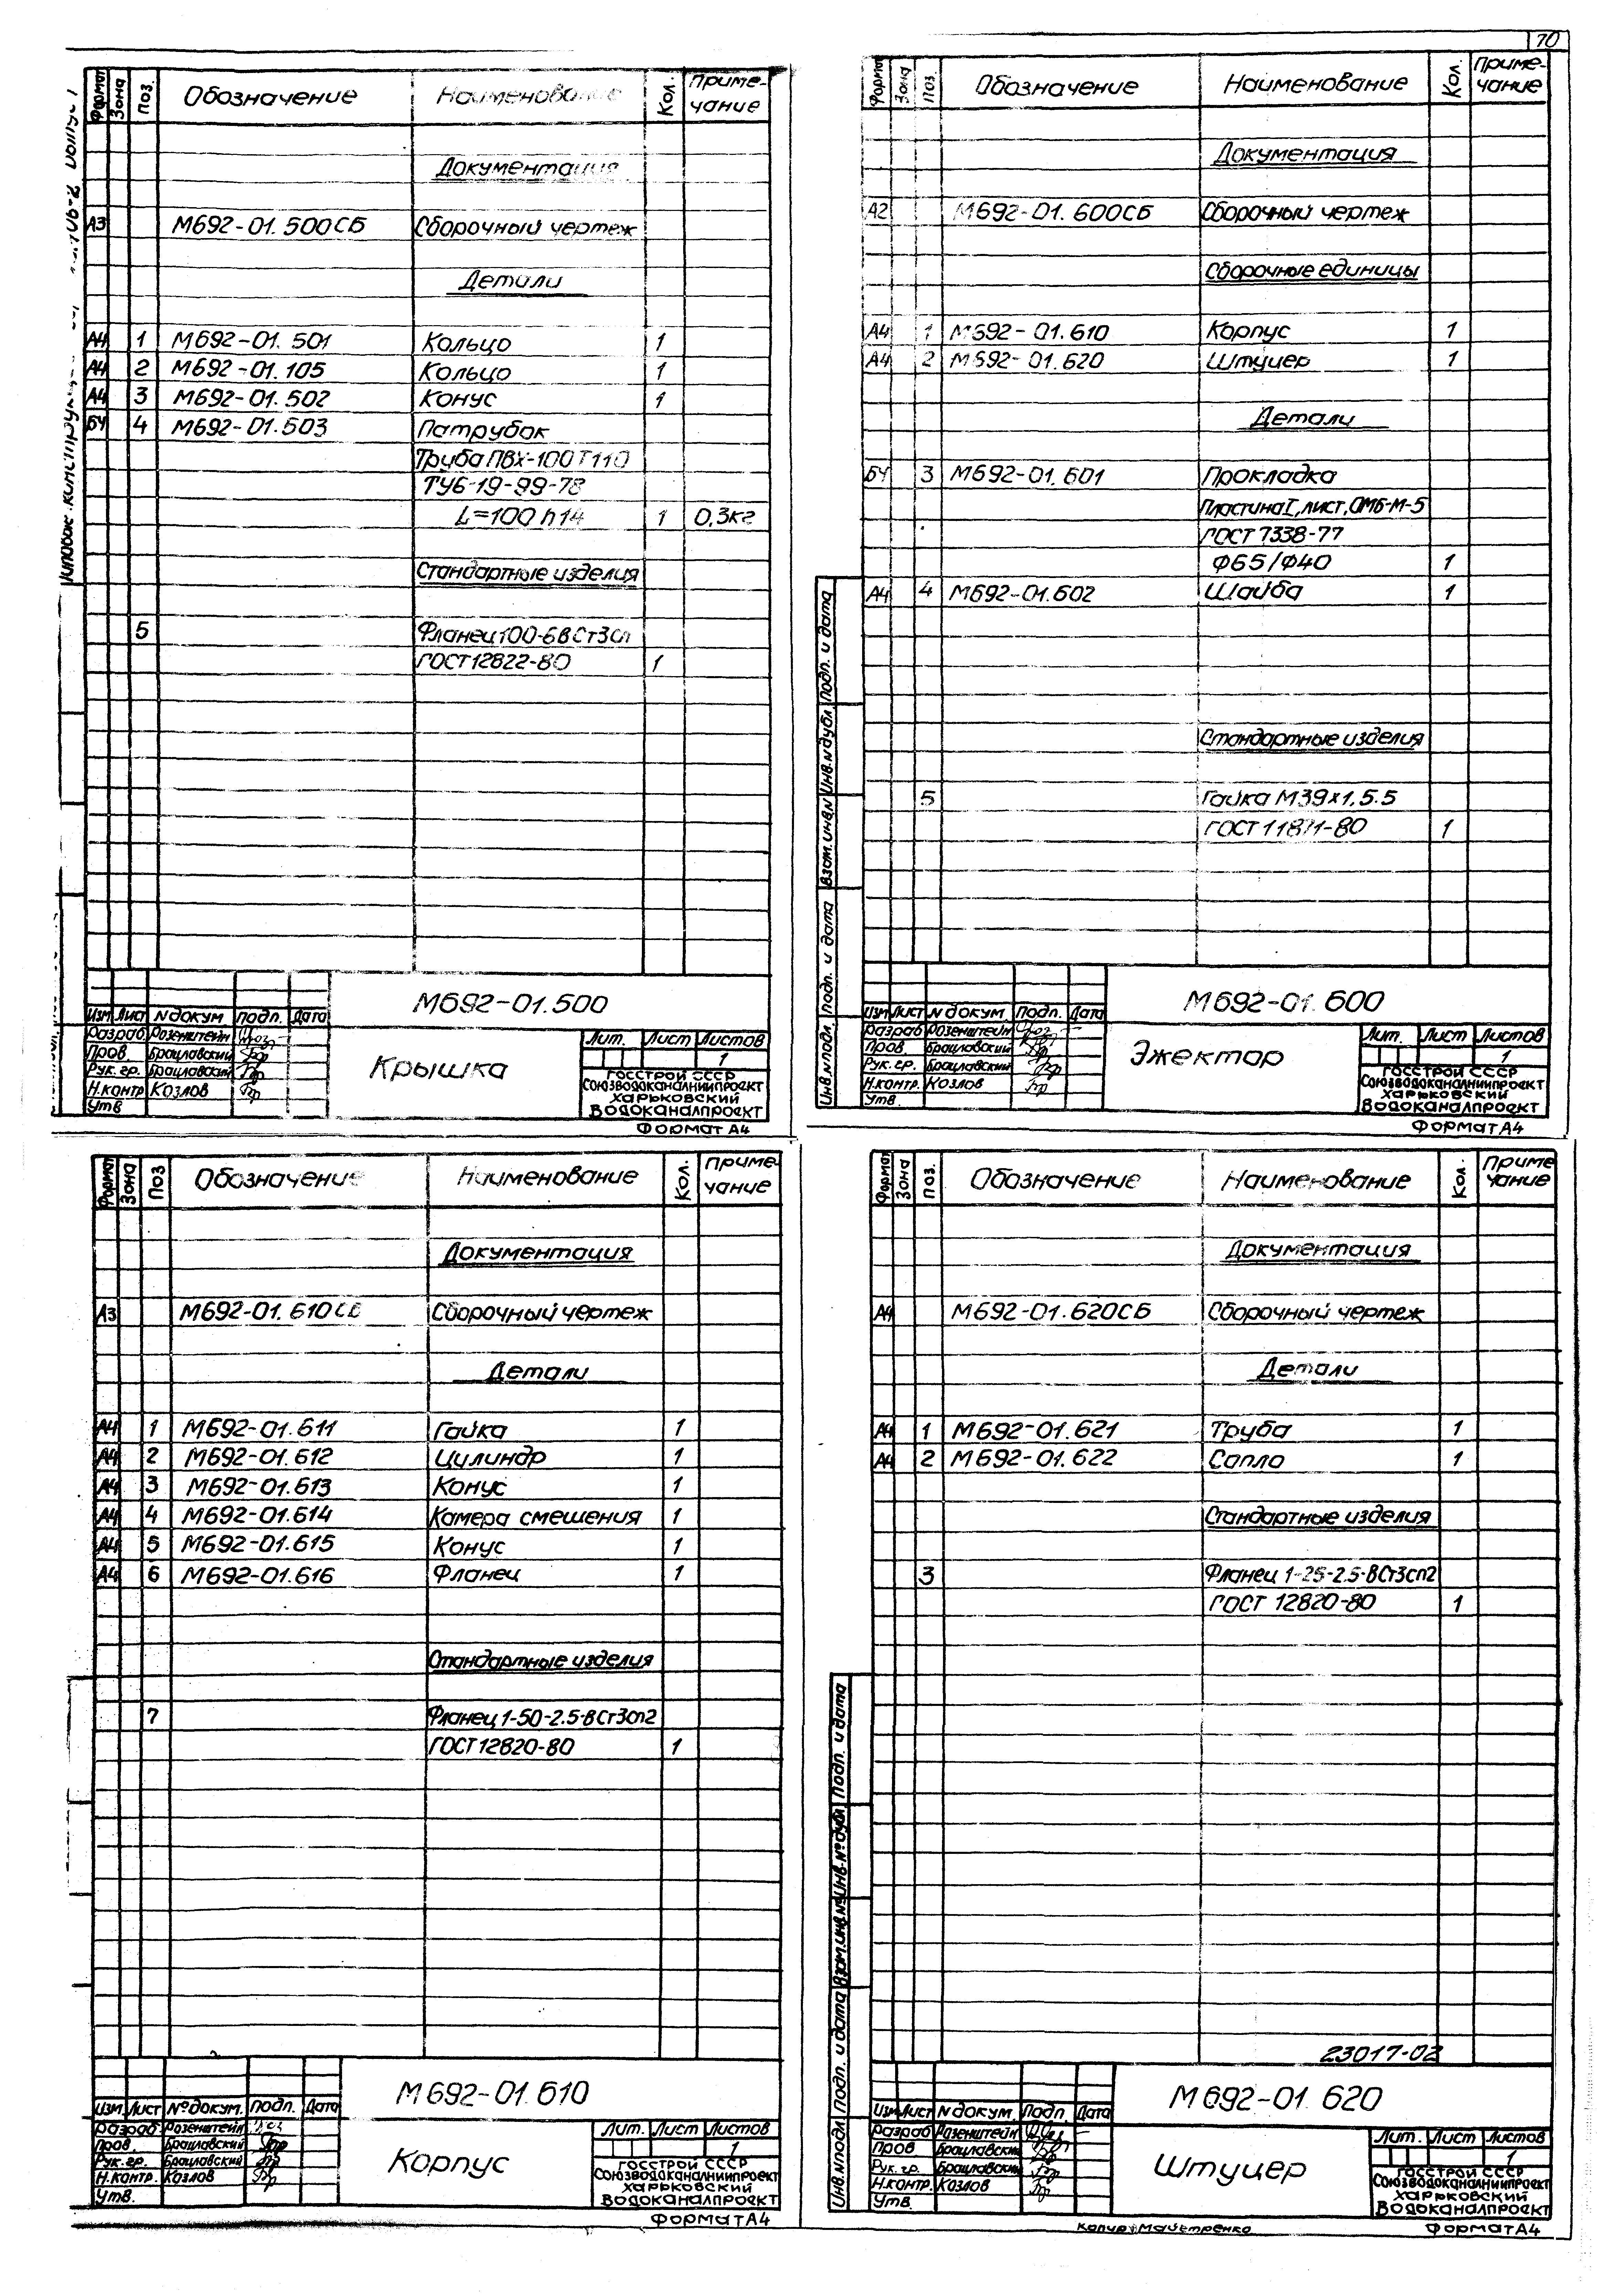 70
Формат Зона Поз. Обозначение Наименование Кол. Приме-
чание
Документация
А3 М692-01.500СБ Сборочный чертеж
Детали
А4 1 М692-01.501 Кольцо 1
А4 2 М692-01.105 Кольцо 1
А4 3 М692-01.502 Конус 1
БЧ 4 М692-01.503 Патрубок
Труба ПВХ-100Т110
ТУ6-19-99-78
L=100 h14 1 0,3кг
Стандартные изделия
5 Фланец 100-6ВСт3сп
ГОСТ12822-80 1
М692-01.500
Изм Лист N докум Подп. Дата
Разраб Розенштейн
Пров. Брацлавский
Рук. гр. Брацлавский
Н.контр. Козлов
Утв
Крышка
Лит. Лист Листов
1
ГОССТРОЙ СССР
Союзводоканалниипроект
Харьковский
Водоканалпроект
Формат А4
Формат Зона Поз Обозначение Наименование Кол. Приме-
чание
Документация
А2 М692-01.600СБ Сборочный чертеж
Сборочные единицы
А4 1 М692-01.610 Корпус 1
А4 2 М692-01.620 Штуцер 1
Детали
БЧ 3 М692-01.601 Прокладка
Пластина I, лист, ОМБ-М-5
ГОСТ 7338-77
Ф65/Ф40 1
А4 4 М692-01.602 Шайба 1
Стандартные изделия
5 Гайка М39х1,5.5
ГОСТ 11871-80 1
Инв.N подл Подп. и дата Взам.инв.N Инв.N дубл. Подп. и дата
М692-01.600
Изм Лист N докум Подп. Дата
Разраб Розенштейн
Пров. Брацлавский
Рук. гр. Брацлавский
Н.контр. Козлов
Утв.
Эжектор
Лит. Лист Листов
1
ГОССТРОЙ СССР
Союзводоканалниипроект
Харьковский
Водоканалпроект
Формат А4
Формат Зона Поз Обозначение Наименование Кол. Приме-
чание
Документация
А3 М692-01.610СБ Сборочный чертеж
Детали
А4 1 М692-01.611 Гайка 1
А4 2 М692-01.612 Цилиндр 1
А4 3 М692-01.613 Конус 1
А4 4 М692-01.614 Камера смешения 1
А4 5 М692-01.615 Конус 1
А4 6 М692-01.616 Фланец 1
Стандартные изделия
7 Фланец 1-50-2.5-ВСт3сп2
ГОСТ12820-80 1
М692-01.610
Изм. Лист №докум. Подп. Дата
Разраб Розенштейн
Пров. Брацлавский
Рук. гр. Брацлавский
Н.контр. Козлов
Утв.
Корпус
Лит. Лист Листов
1
ГОССТРОЙ СССР
Союзводоканалниипроект
Харьковский
Водоканалпроект
Формат А4
Формат Зона Поз. Обозначение Наименование Кол. Приме
чание
Документация
А4 М692-01.620СБ Сборочный чертеж
Детали
А4 1 М692-01.621 Труба 1
А4 2 М692-01.622 Сопло 1
Стандартные изделия
3 Фланец 1-25-2.5-ВСт3сп2
ГОСТ 12820-80 1
23017-02
Инв.№подл Подп. и дата Взам.инв.№ Инв.№дубл Подп. и дата
М692-01.620
Изм Лист N докум. Подп. Дата
Разраб Розенштейн
Пров Брацлавский
Рук. гр. Брацлавский
Н.контр. Козлов
Утв.
Штуцер
Лит. Лист Листов
1
ГОССТРОЙ СССР
Союзводоканалниипроект
Харьковский
Водоканалпроект
Копир. Майстренко Формат А4